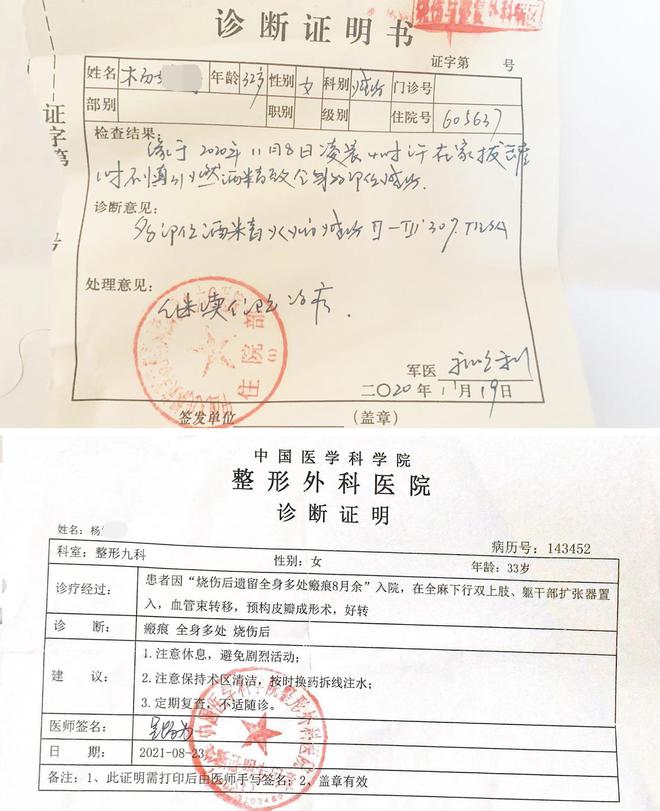 烧伤与整复外科病区
诊断证明书
证字第 号
姓名 杨 年龄 32岁 性别 女 科别 烧伤 门诊号
部别 职别 级别 住院号 605637
证字第
号
检查结果:
缘于2020年11月8日凌晨 时许在家拔罐
时不慎引燃酒精致全身多部位烧伤.
诊断意见:
多部位酒精火焰烧伤 II-III° 30% TBSA
处理意见:
继续住院治疗.
住院部
(1)
军医
二〇20年11月19日
签发单位 (盖章)
中国医学科学院
整形外科医院
诊断证明
姓名:杨
病历号:143452
科室:整形九科 性别:女 年龄:33岁
诊疗经过: 患者因“烧伤后遗留全身多处瘢痕8月余”入院,在全麻下行双上肢、躯干部扩张器置
入,血管束转移,预构皮瓣成形术,好转
诊 断: 瘢痕 全身多处 烧伤后
建 议: 1.注意休息,避免剧烈活动;
2.注意保持术区清洁,按时换药拆线注水;
3.定期复查、不适随诊。
医师签名:
日 期: 2021-08-23
备注:1、此证明需打印后由医师手写签名;2、盖章有效
中国医学科学院整形外科医院